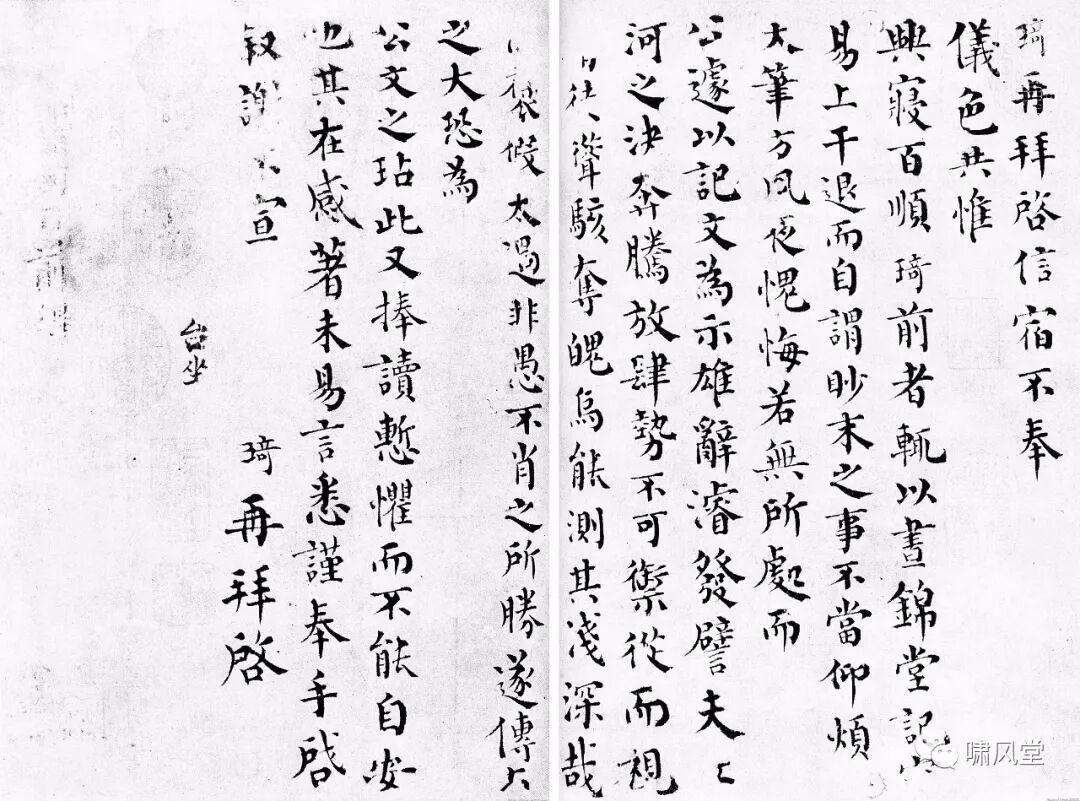 琦再拜啓信宿不奉
儀色共惟
興寢百順琦前者輒以晝錦堂記
易上干退而自謂眇末之事不當仰煩
大筆方夙夜愧悔若無所處而
公遽以記文為示雄辭濬發譬夫
河之決奔騰放肆勢不可禦從而視
徒聳駭奪魄烏能測其淺深哉
褒假太過非愚不肖之所勝遂傳
之大恐為
公文之玷此又捧讀慙懼而不能自安
也其在感著未易言悉謹奉手啓
叙謝不宣
琦再拜啓
台坐
啸风堂